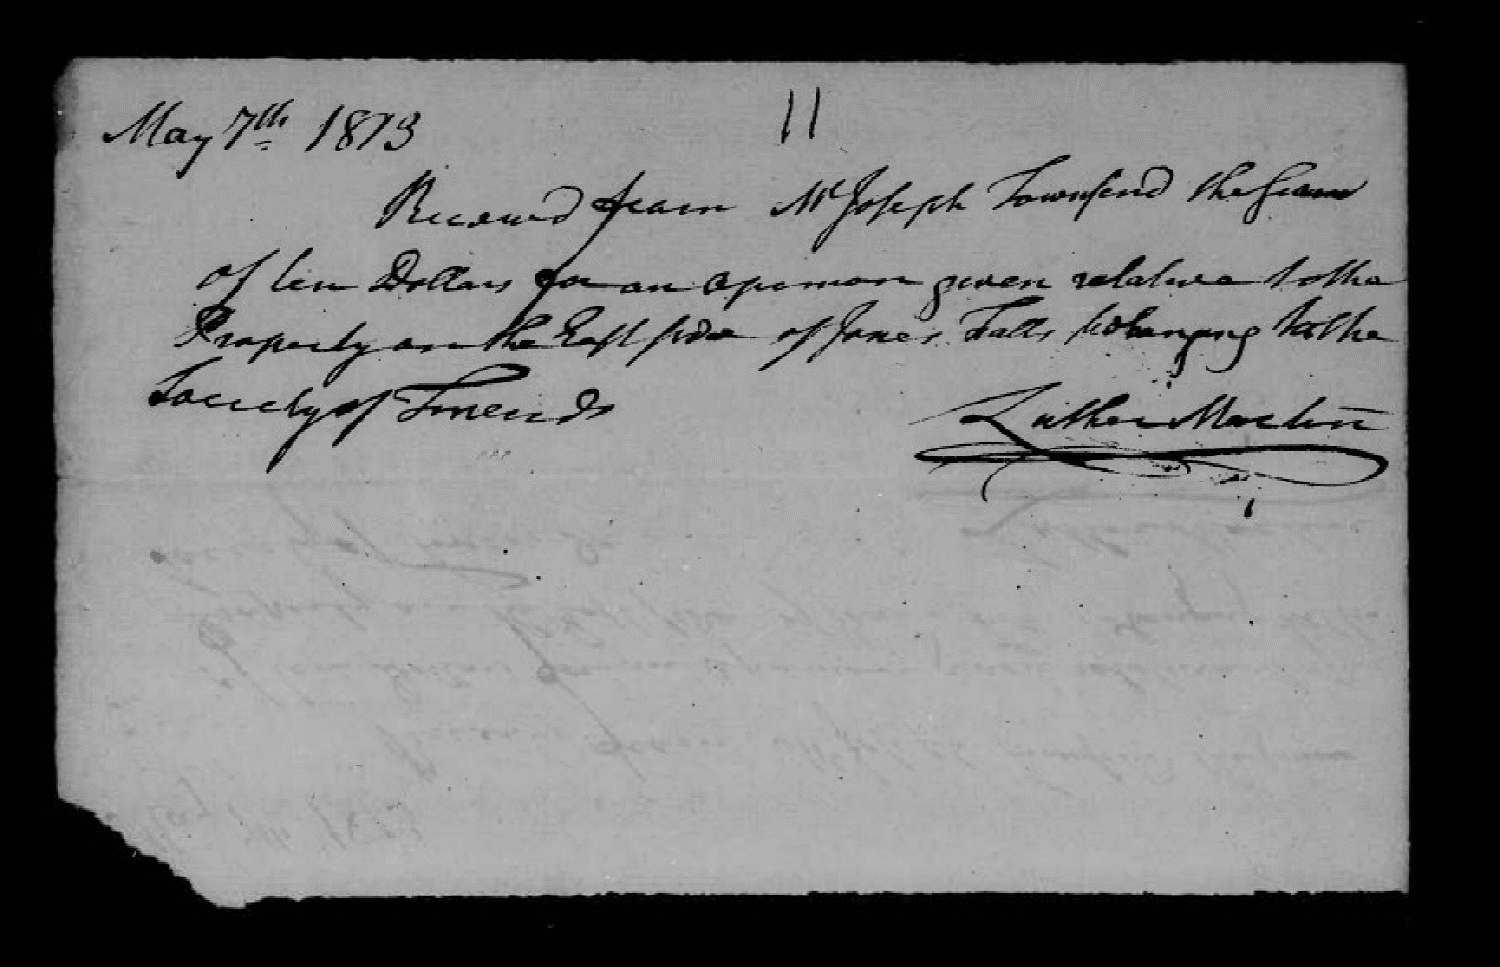 May 7th 1813 11
Received from Mr Joseph Townsend the Sum
of ten Dollars for an opinion given relative to the
Property on the East side of Jones Falls belonging to the
Society of Friends
Luther Martin